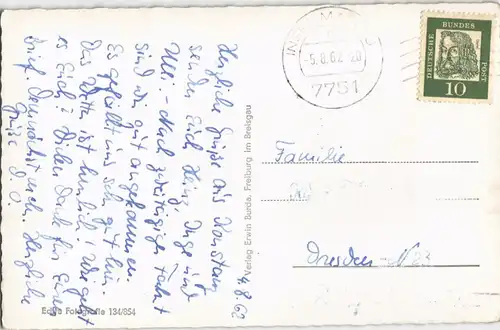 4.8.62
Herzliche Grüße aus Konstanz
senden Euch Heinz, Inge und
Uli. - Nach zweitägiger Fahrt
sind wir gut angekommen.
Es gefällt uns sehr gut hier.
Das Wetter ist herrlich! Wie geht
es Euch? Vielen Dank für Euren
Brief. Demnächst mehr. Herzliche
Grüße D. O.
Echte Fotografie 134/854
Verlag Erwin Burda, Freiburg im Breisgau
INSEL MAINAU
-5.8.62-20
7751
DEUTSCHE BUNDESPOST
10
Familie
Dresden - N 23